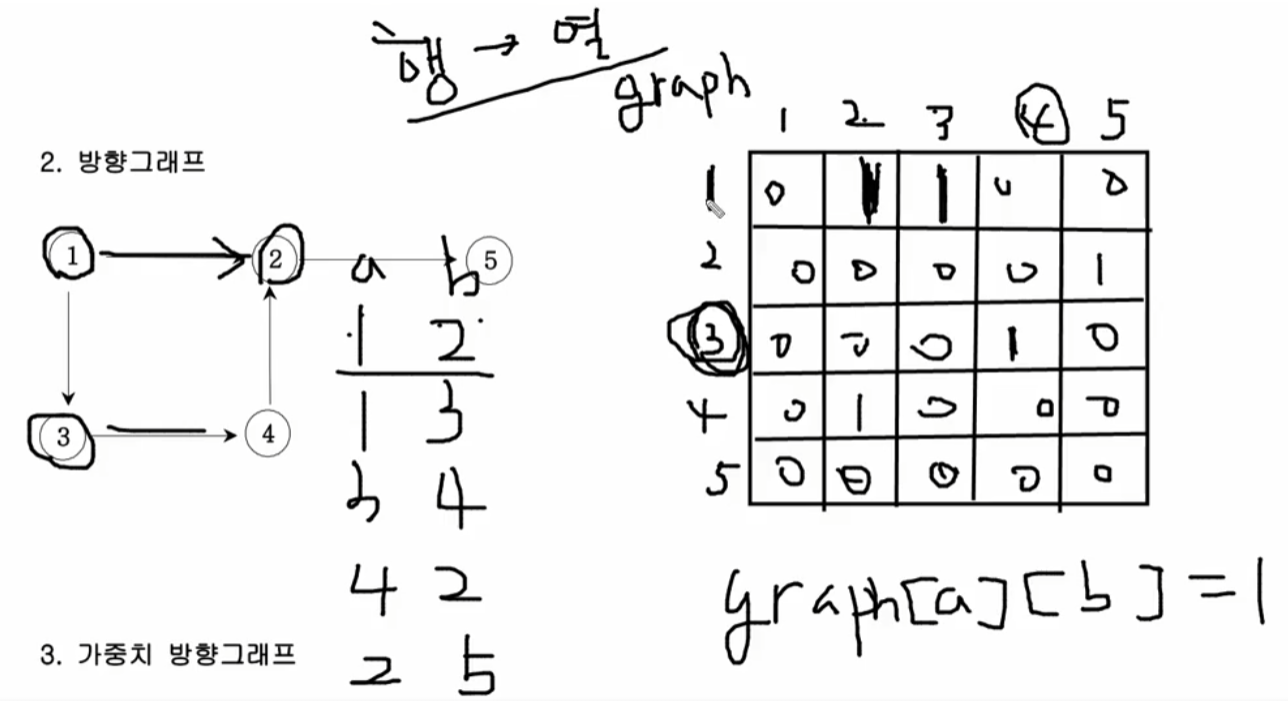 행 → 열
graph
2. 방향그래프
1 2 5
3 4
a b
1 2
1 3
3 4
4 2
2 5
1 2 3 4 5
1 0 1 1 0 0
2 0 0 0 0 1
3 0 0 0 1 0
4 0 1 0 0 0
5 0 0 0 0 0
graph[a][b]=1
3. 가중치 방향그래프